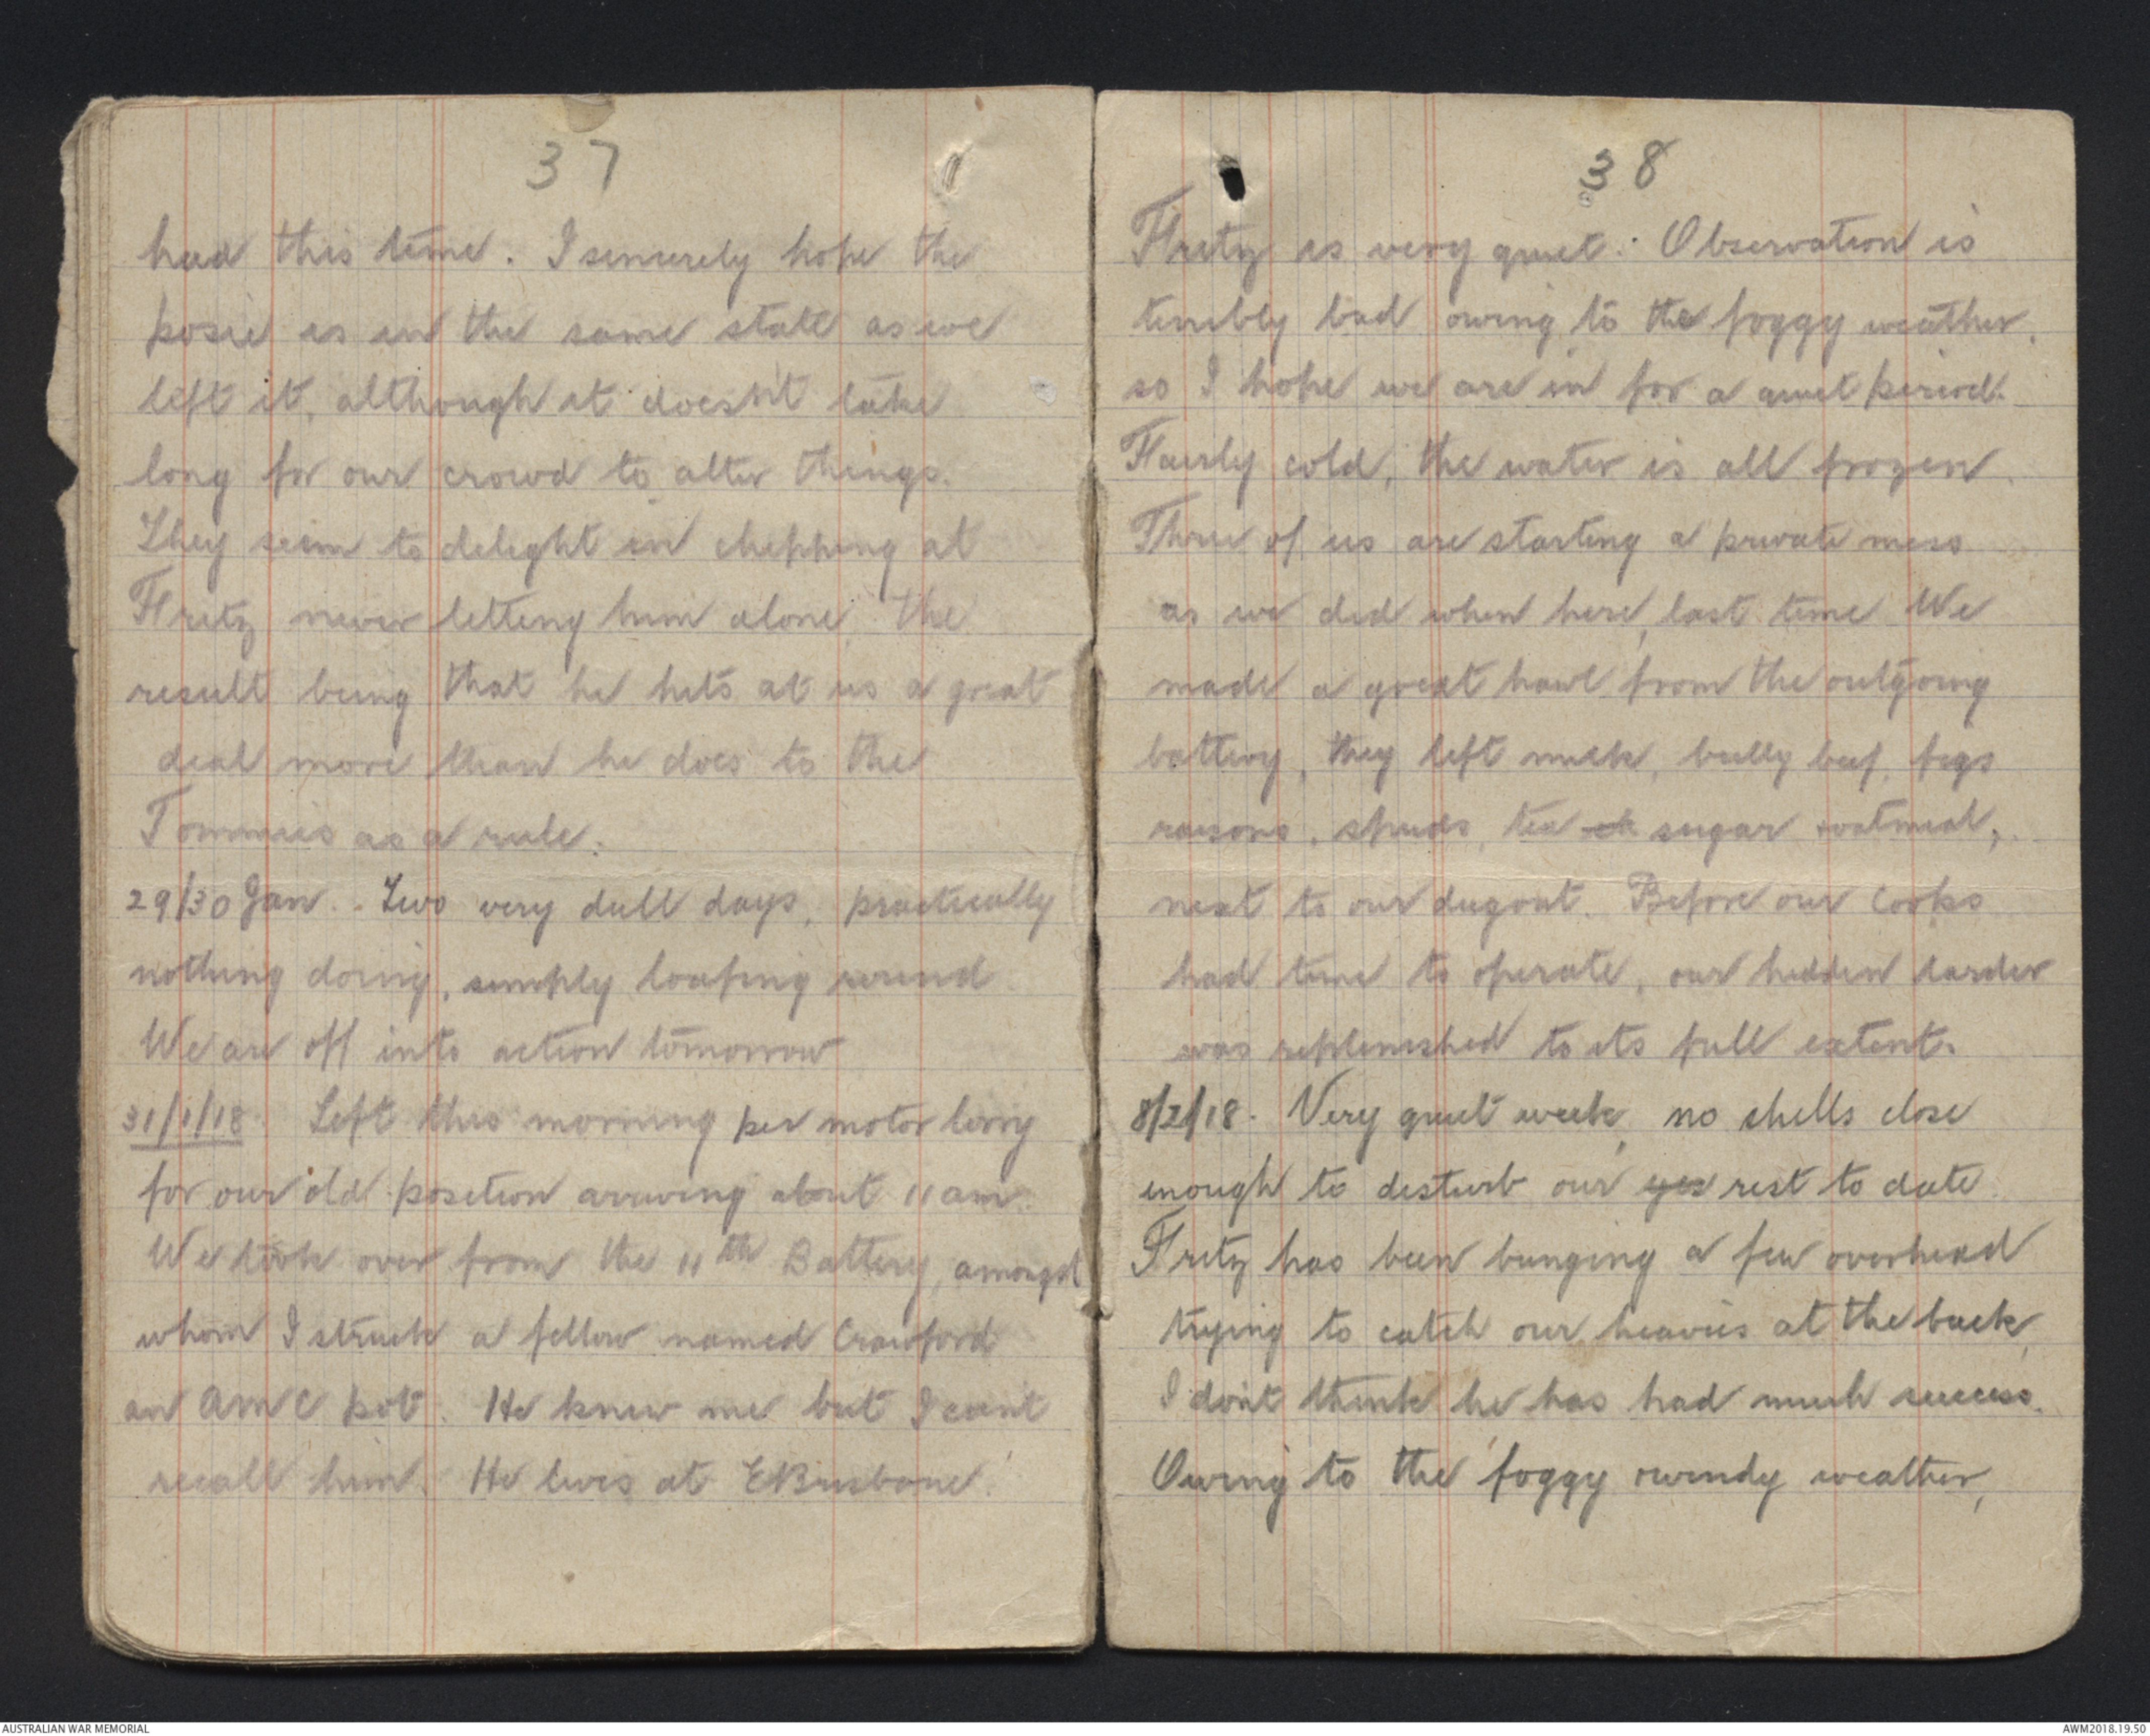 37
had this time. I sincerely hope the
posie is in the same state as we
left it, although it doesn't take
long for our crowd to alter things.
They seem to delight in chipping at
Fritz never letting him alone, the
result being that he hits at us a great
deal more than he does to the
Tommies as a rule.
29/30 Jan. Two very dull days, practically
nothing doing, simply loafing round.
We are off into action tomorrow
31/1/18. Left this morning per motor lorry
for our old position arriving about 11 am.
We took over from the 11th Battery, amongst
whom I struck a fellow named Crawford
an AMC pot. He knew me but I can't
recall him. He lives at E Brisbane.
38
Fritz is very quiet. Observation is
terribly bad owing to the foggy weather,
so I hope we are in for a quiet period.
Fairly cold, the water is all frozen.
Three of us are starting a private mess
as we did when here, last time We
made a great haul from the outgoing
battery, they left milk, bully beef, figs
raisons, spuds, tea sugar + oatmeal,
next to our dugout. Before our cooks
had time to operate, our hidden larder
was replenished to its full extent.
8/2/18. Very quiet week, no shells close
enough to disturb our yes rest to date.
Fritz has been bunging a few overhead
trying to catch our heavies at the back,
I don't think he has had much success.
Owing to the foggy + windy weather,
AUSTRALIAN WAR MEMORIAL
AWM2018.19.50